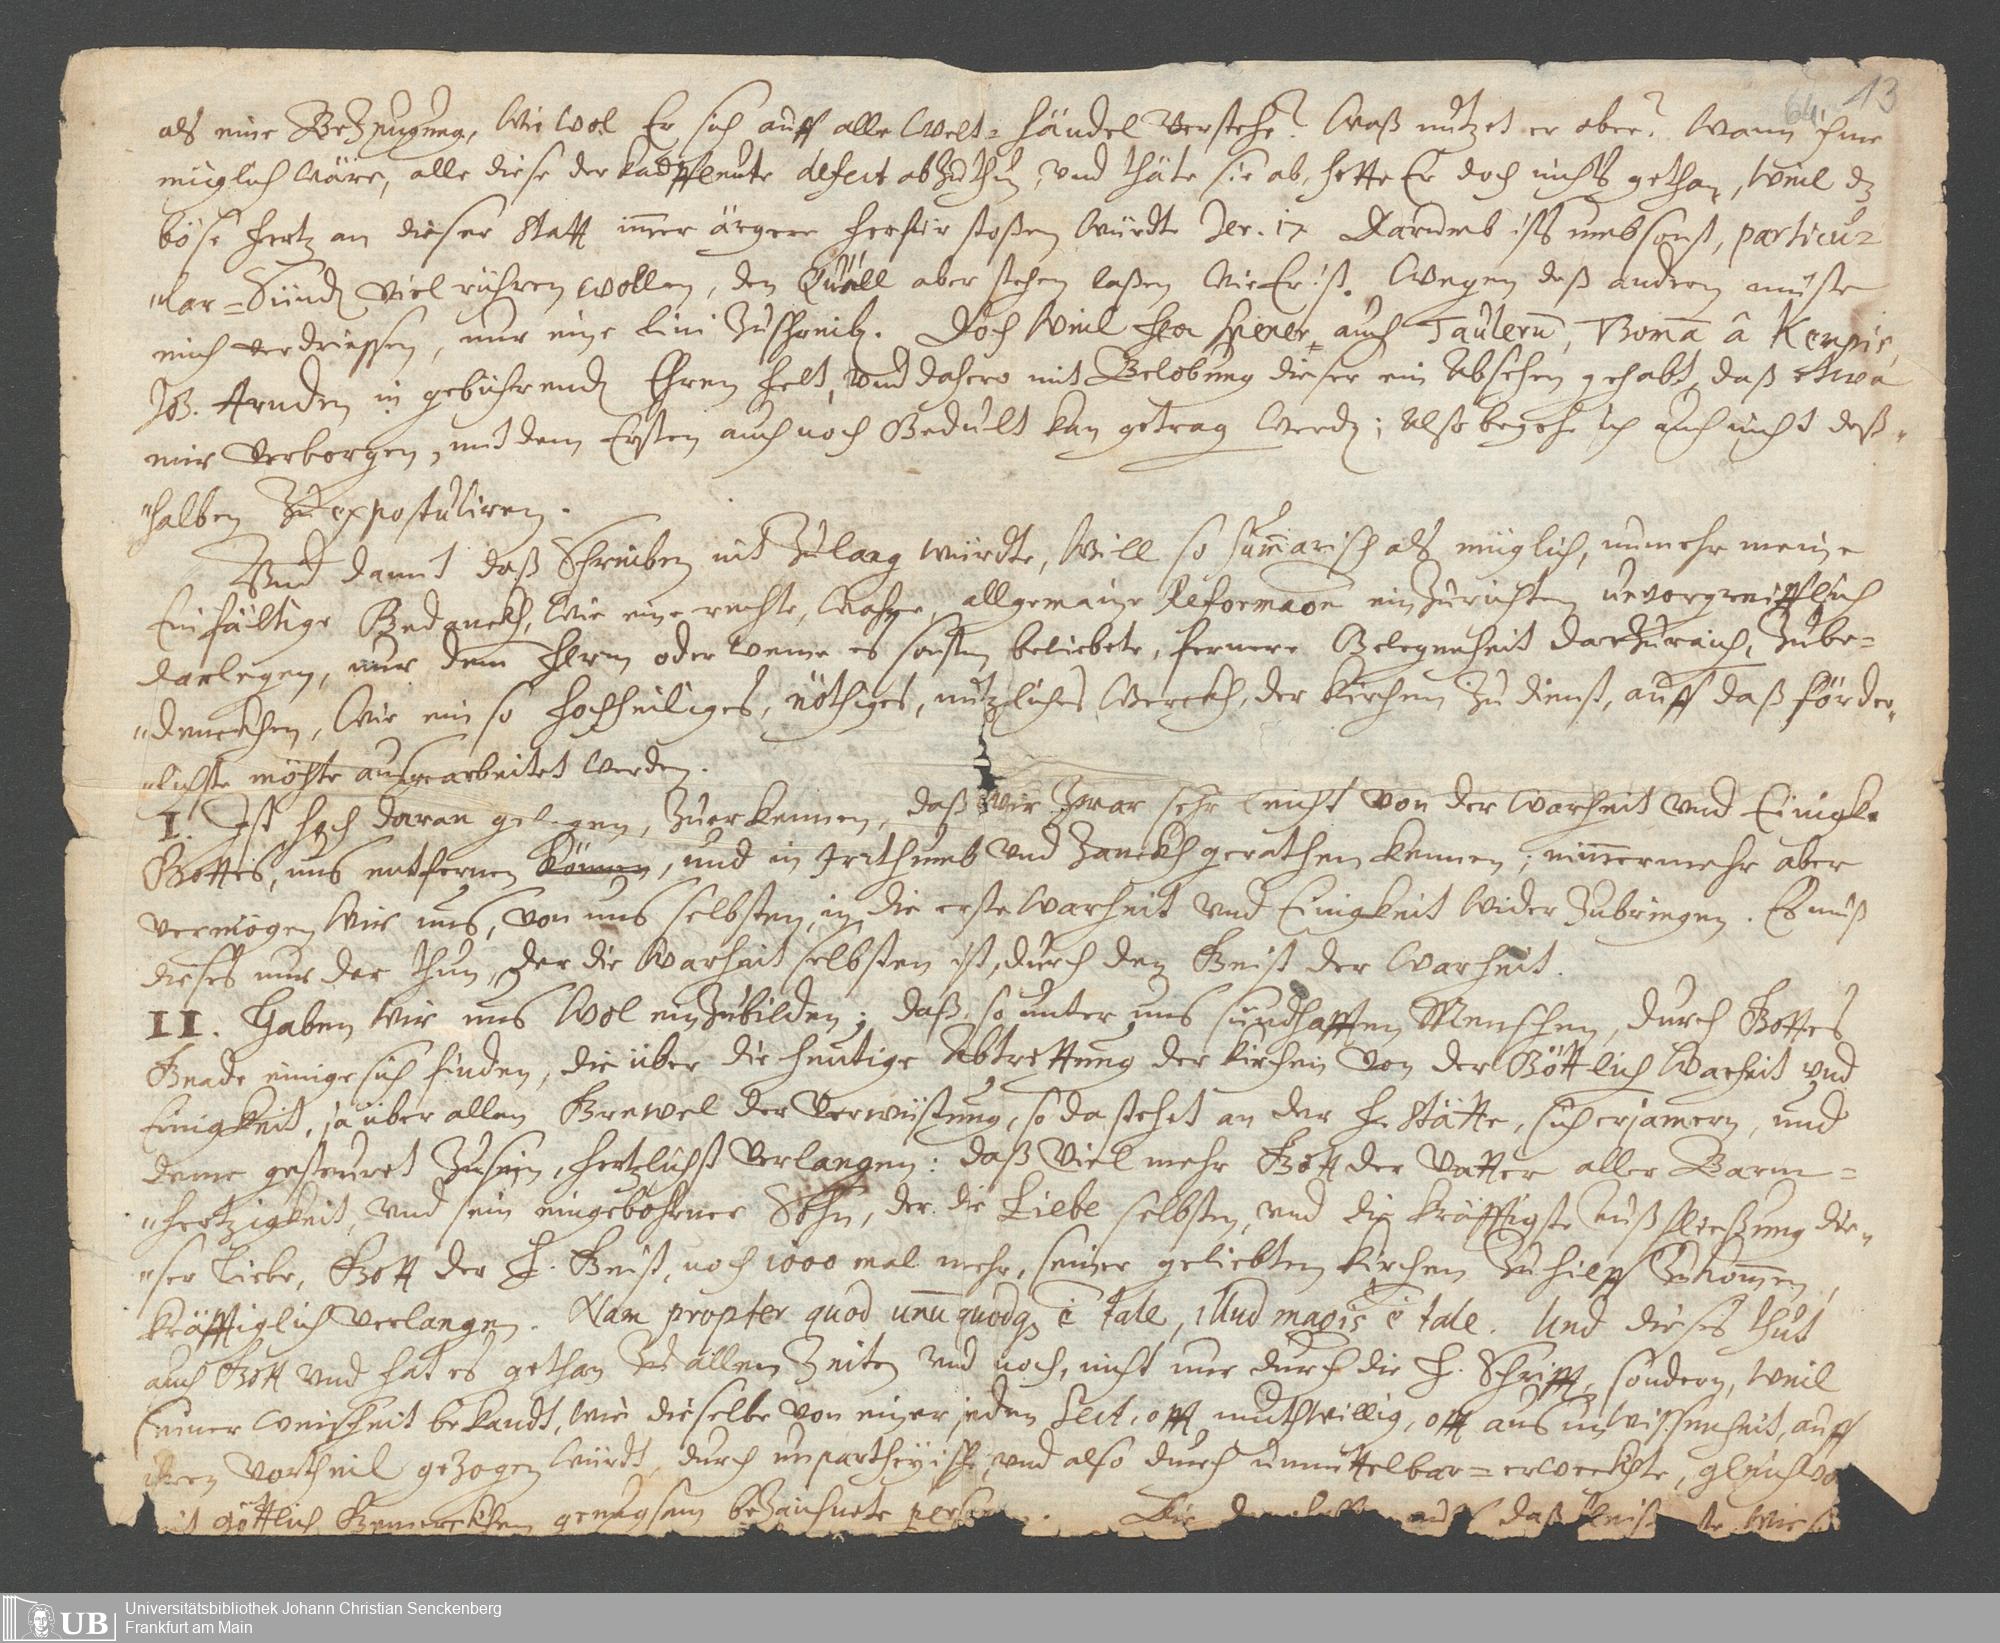 64. 13
als eine Bezeugung, Wie wol Er sich auff alle Welt-händel verstehe? Waß nutzet er aber? Wann ihme
müglich wäre, alle diese der kauffleute defect abzuthun, und thäte sie ab, hette Er doch nichts gethan, weil dz
böse hertz an dieser statt immer ärgere herfür stoßen würdte Jer. 17 Darumb ists umbsonst, particu-
"lar-Sünd viel rühren wollen, den Quäll aber stehen laßen wie Er ist. Wegen deß andern müste
mich verdriessen, nur eine lini zuschreib. Doch weil Herr Spener, auch Taulerū, Thomā â Kempis,
Joh. Arnden in gebührend Ehren helt, und dahero mit Belobung dieser ein Absehen gehabt, daß etwa
mir verborgen, mit dem Ersten auch noch Gedult kan getrag werd; Also begehe ich auch nicht deß-
"halben zu expostuliren.
Und damit daß Schreiben nit zulang würdte, Will so summarisch als müglich, nunmehr meine
Einfältige Gedanckh, wie eine rechte, wahre, allgemaine Reformaon einzurichten unvorgreifflich
darlegen, nur dem Herrn oder weme es sonsten beliebete, fernere Gelegenheit darzuraich, zube-
"denckhen, wie ein so hochheiliges, nöthiges, nutzliches Werckh, der Kirchen zu dienst, auff daß förder-
"lichste möchte ausgearbeitet werden.
I. Ist hoch daran gelegen, zuerkennen, daß wir zwar sehr leicht von der Warheit und Einigk.
Gottes, uns entfernen können, und in Irrthumb und Zanckh gerathen kennen; nimmermehr aber
vermögen wir uns, von uns selbsten, in die erste Warheit und Einigkeit wider zubringen. Es muß
dieses nur der thun, der die Warheit selbsten ist, durch den Geist der Warheit.
II. Haben wir uns wol einzubilden; daß, so unter uns sündhafften Menschen, durch Gottes
Gnade einige sich finden, die über die heutige Abtrettung der Kirchen von der Göttlich Warheit und
Einigkeit, ja über allen Grewel der Verwüstung, so da stehet an der H. Stätte, sich erjamern, und
deme gesteuret zusein, hertzlichst verlangen: daß viel mehr Gott der Vatter aller Barm-
"hertzigkeit, und sein eingebohrner Sohn, der die Liebe selbsten, und die kräfftigste außfliessung die-
"ser Liebe, Gott der H. Geist, noch 1000 mal mehr, seiner geliebten Kirchen zu hilff zukommen,
kräfftiglich verlangen. Nam propter quod unūquodq; ē tale, illud magis ē tale. Und dieses thut
auch Gott und hat es gethan zu allen Zeiten und noch, nicht nur durch die H. Schrifft, sondern, weil
seiner Weisheit bekandt, wie dieselbe von einer jeden Sect, offt muthwillig, offt aus unwissenheit, auff
ihren Vortheil gezogen würdt, durch unpartheyische, und also durch unmittelbar-erweckhte, gleichwo
mit göttlich Gemerckhen genugsam bezaichnete person. Die daß